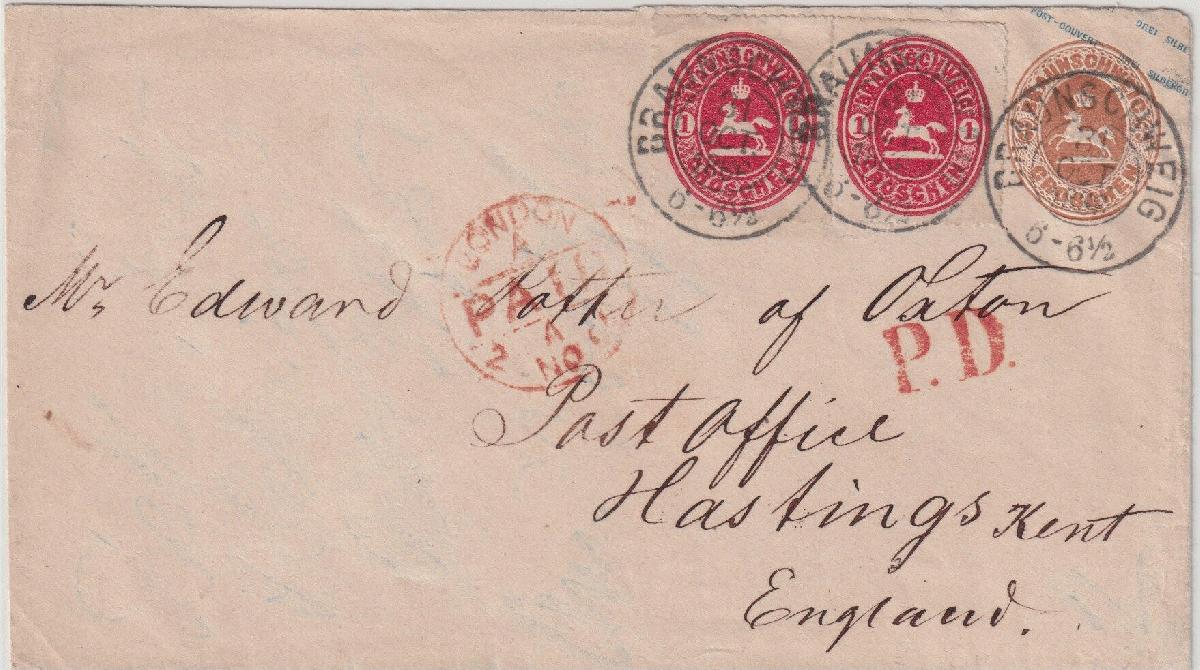 POST-COUVERT DREI SILBE
SILBERGR
BRAUNSCHWEIG
1 1
GROSCHEN
BRAUNSCHWEIG
1 1
GROSCHEN
BRAUNSCHWEIG
GROSCHEN
BRAUNSCHWEIG
31
OCT
6-6½
BRAUN
6-6½
BRAUNSCHWEIG
31
OCT
6-6½
LONDON
A
PAID
A
2 NO 6
Mr Edward Potter of Oxton
P.D.
Post Office
Hastings Kent
England.